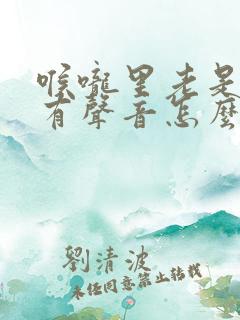 喉嚨里老是
有聲音怎麼
劉清波
未經同意禁止轉載